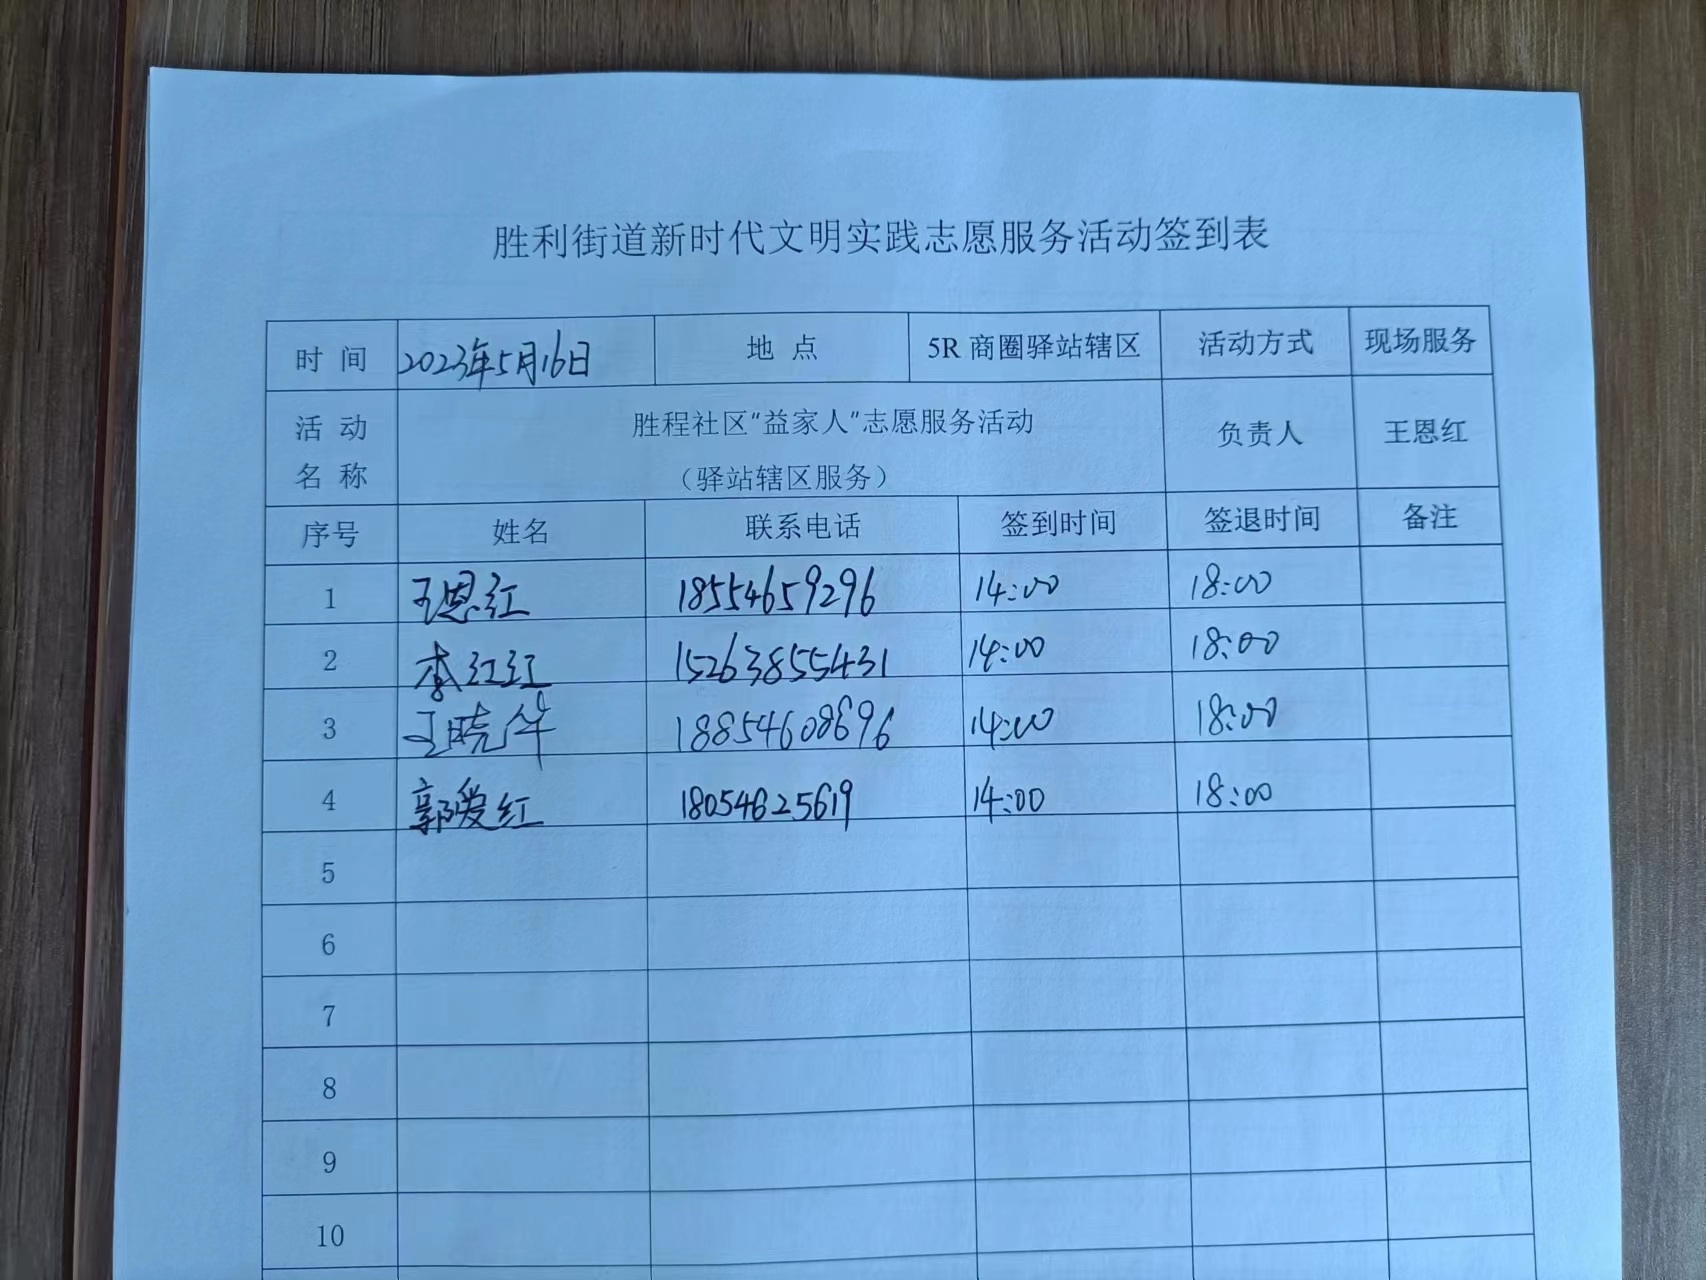 胜利街道新时代文明实践志愿服务活动签到表
时 间 2023年5月16日 地 点 5R 商圈驿站辖区 活动方式 现场服务
活 动 名 称 胜程社区“益家人”志愿服务活动 负责人 王恩红
（驿站辖区服务）
序号 姓名 联系电话 签到时间 签退时间 备注
1 王恩红 18554659296 14:00 18:00
2 李红红 15263855431 14:00 18:00
3 王晓华 18854608696 14:00 18:00
4 郭爱红 18054625619 14:00 18:00
5
6
7
8
9
10